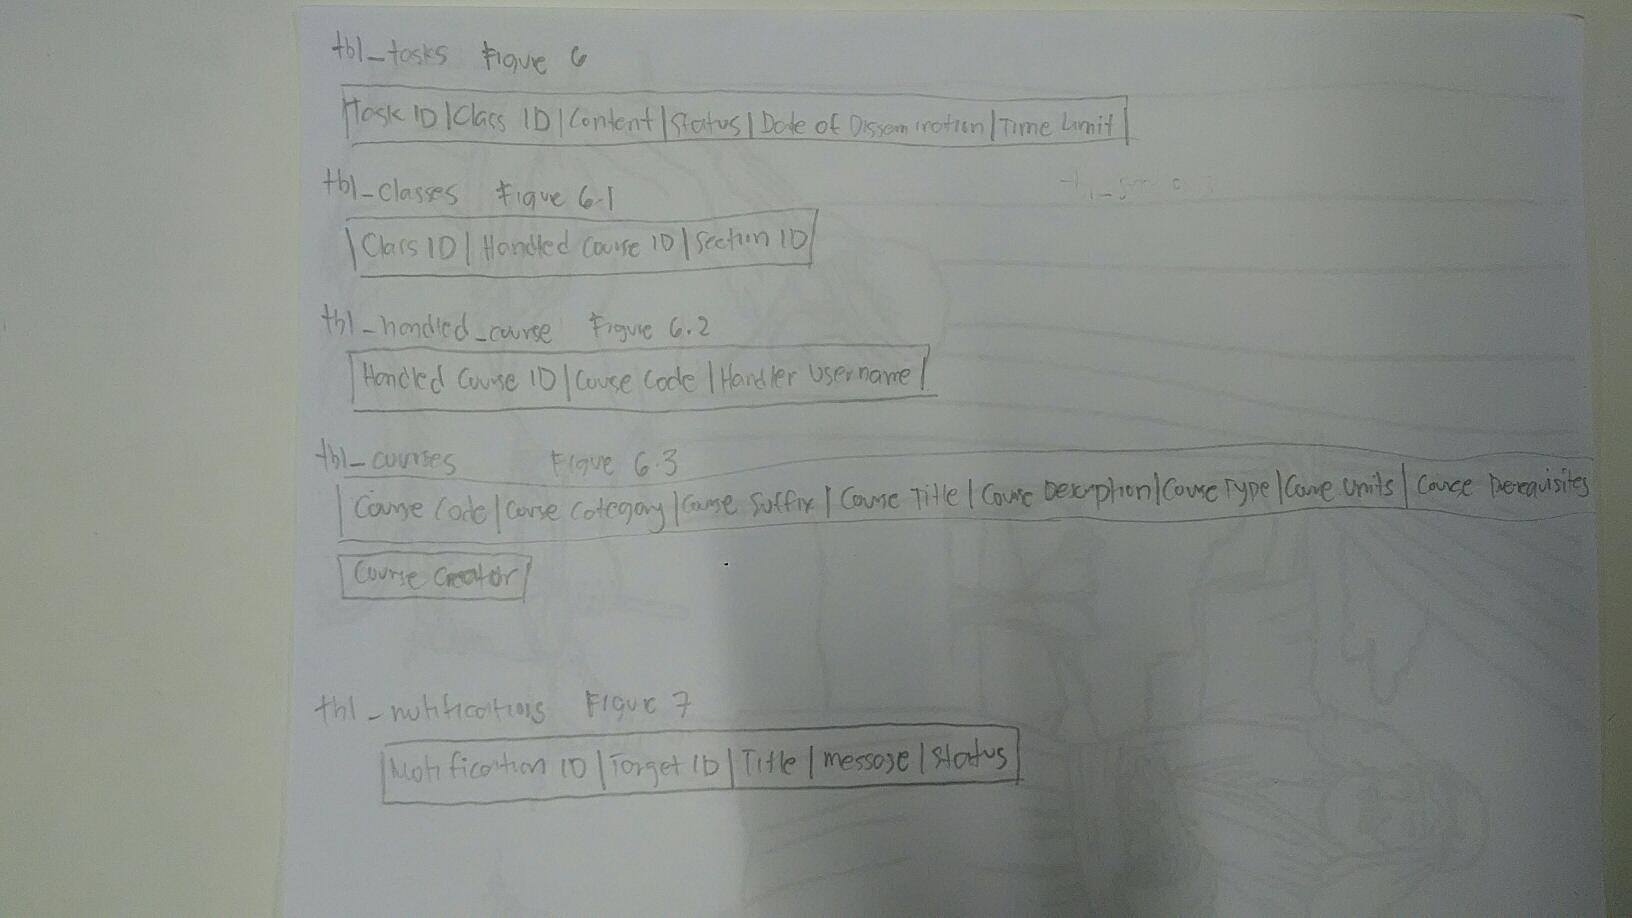 tbl_tasks Figure 6
Task ID | Class ID | Content | Status | Date of Dissemination | Time Limit
tbl_classes Figure 6.1
Class ID | Handled Course ID | Section ID
tbl_handled_course Figure 6.2
Handled Course ID | Course Code | Handler Username
tbl_courses Figure 6.3
Course Code | Course Category | Course Suffix | Course Title | Course Description | Course Type | Course Units | Course Prerequisites
Course Creator
tbl_notifications Figure 7
Notification ID | Target ID | Title | message | Status